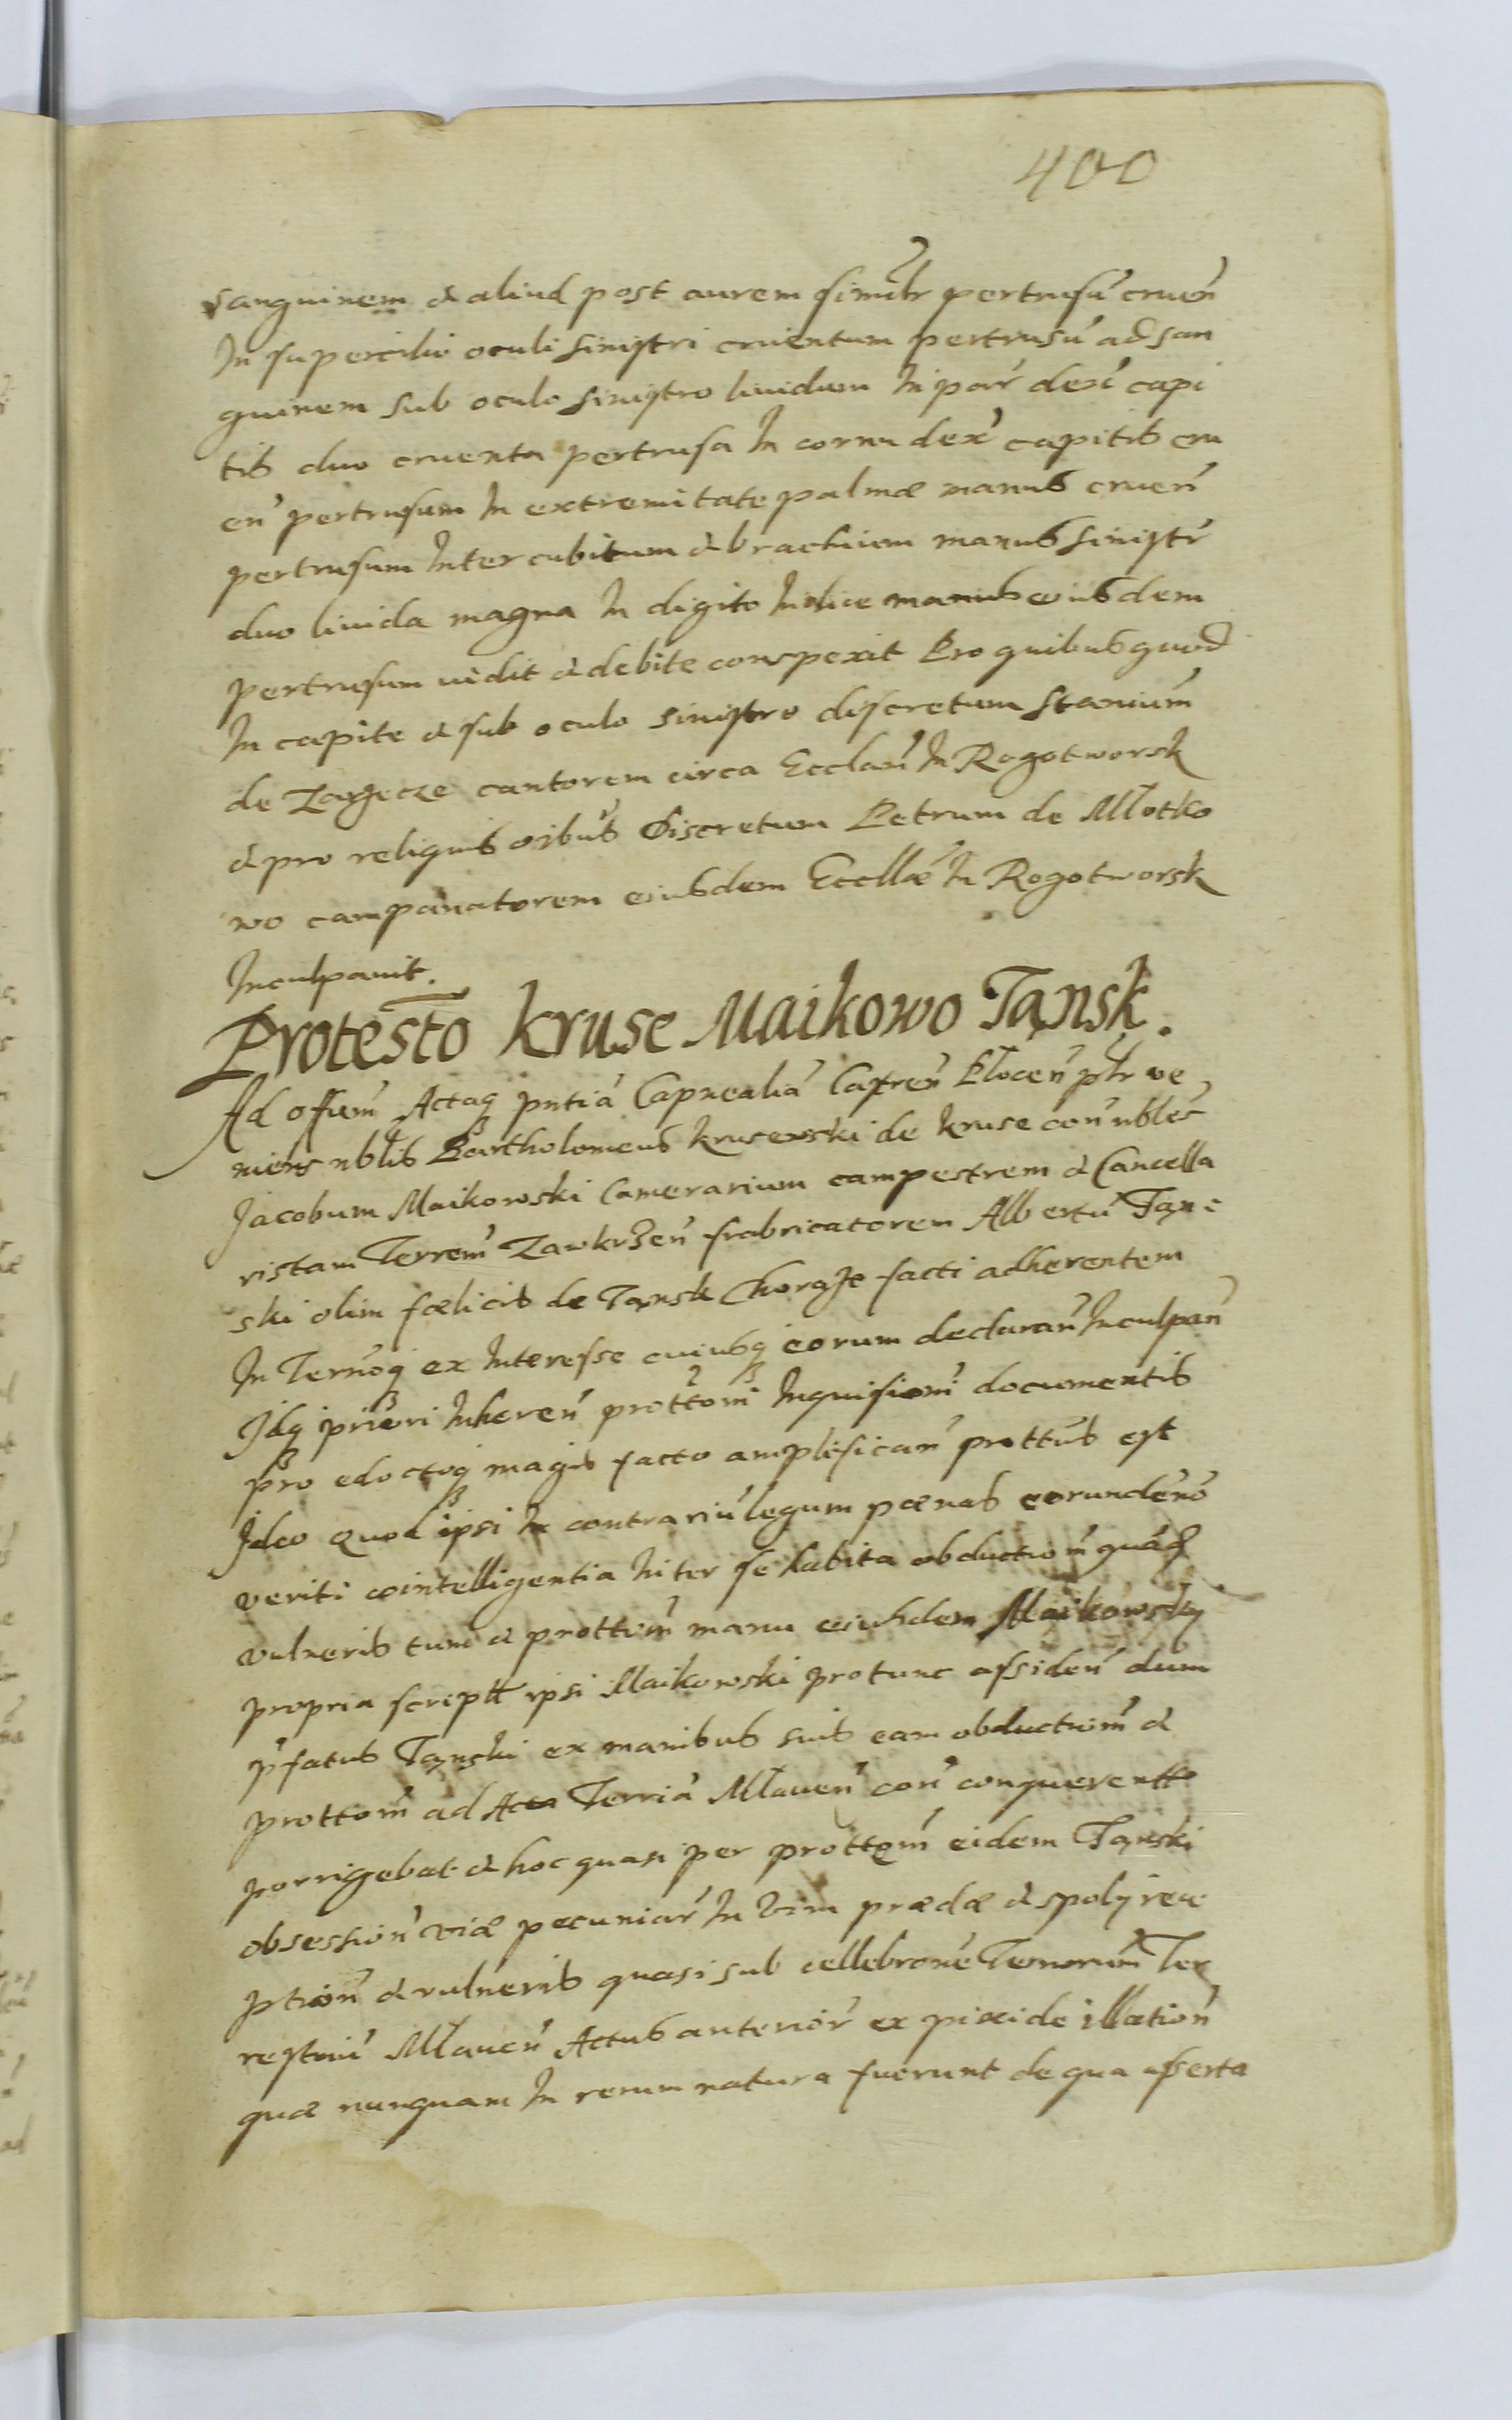 400
sanguinem & aliud post aurem simílr pertrusũ cruen̄
In supercilio oculi sinistri cruentum pertrusũ ad san
guinem sub oculo sinistro liuidum In par̄ dex̄ capi
tis duo cruenta pertrusa In cornu dex̄ capitis cru
en̄ pertrusum In extremitate palmæ manus cruen̄
pertrusum Inter cubitum & brachium manus sinistr̄
duo liuida magna In digito Indice manus eiusdem
pertrusum uidit & debite conspexit Pro quibus quod
In capite & sub oculo sinistro discretum Stanium̄
de Zagięcze cantorem circa Ecclam̄ In Rogotworsk
& pro reliquis oībus Discretum Petrum de Młotko
wo campanatorem eiusdem Ecclłæ In Rogotworsk
Inculpauit.
Protesto Kruse Maikowo Tąnsk.
Ad offium̄ Actaq̨ pntia Capnealia Castren̄ Płocen̄ plr ve
niens nblis Bartholomeus Krusewski de Kruse con̄ nbles
Jacobum Maikowski Camerarium campestrem & Cancella
ristam Terrem̄ Zawkrzen̄ frabricatorem Albertũ Tąn:
ski olim fœlicis de Tąnsk Chorąże facti adherentem
In Termoq̨ ex Interesse cuiusq̨ eorum declaran̄ Inculpan̄
Idq̨ priori Inheren̄ prottom̄ Inquisiom̄ documentis
pro edoctoq̨ magis facto amplifican̄ prottus est
Ideo quod ipsi In contrariũ legum pœnas eorundem̄
veriti cointelligentia Inter se habita obduction̄ quaq̨
vulneris tum & prottom̄ manu eiusdem Maikowsky
propria script ipsi Maikowski protunc assiden̄ dum
p̄fatus Tąnski ex manibus suis eam obductiom̄ &
prottom̄ ad Acta Terria Mławen̄ con̄ conquerentto
porrigebat & hoc quasi per prottom̄ eidem Tąnski
obsession̄ viæ pecuniar̄ In vim prædæ & spoly rece
ption̄ & vulneris quasi sub cellebrone Termorum̄ Ter
restriũ Mławen̄ Actus anterior̄ ex pixide illation̄
quæ nunquam In rerum natura fuerunt de qua asserta